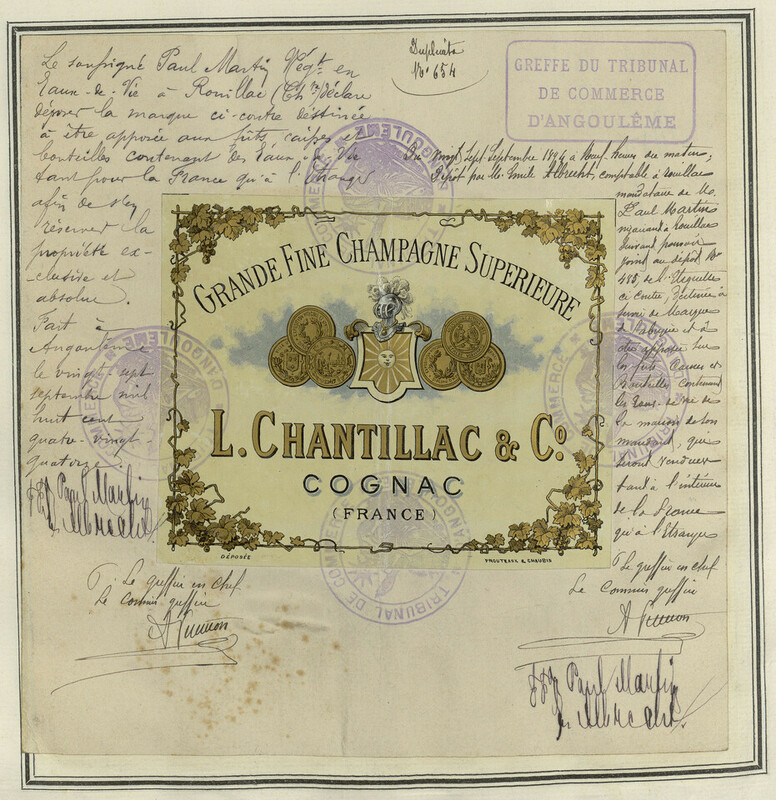 Le soussigné Paul Martin Négt. en
Eaux-de-Vie à Rouillac (Chte) déclare
déposer la marque ci-contre destinée
à être apposée aux fûts, caisses et
bouteilles contenant des Eaux-de-Vie
tant pour la France qu'à l'Etranger
afin de s'en
réserver la
propriété ex-
clusive et
absolue.
Fait à
Angoulême
le vingt sept
septembre mil
huit cent
quatre-vingt-
quatorze.
Paul Martin
P. Le greffier en chef
Le commis greffier
Duplicata
No 654
GREFFE DU TRIBUNAL
DE COMMERCE
D'ANGOULÊME
Du vingt Sept Septembre 1894 à Neuf heures du matin,
Dépôt par Mr Emile Albrecht, comptable à Rouillac
mandataire de Mr
Paul Martin
négociant à Rouillac
suivant pouvoir
joint au dépôt No
485, de l'Etiquette
ci contre, destinée à
servir de Marque
de fabrique et à
être apposée sur
les fûts Caisses et
Bouteilles contenant
les Eaux-de-vie de
la maison de son
mandant, qui
seront vendues
tant à l'intérieur
de la France
qu'à l'Etranger
P. Le greffier en chef
Le commis greffier
Paul Martin
GRANDE FINE CHAMPAGNE SUPERIEURE
L. CHANTILLAC & Co.
COGNAC
(FRANCE)
DÉPOSÉE
PROUTEAUX & CHAURIS
TRIBUNAL DE COMMERCE D'ANGOULEME
TRIBUNAL DE COMMERCE D'ANGOULEME
TRIBUNAL DE COMMERCE D'ANGOULEME
TRIBUNAL DE COMMERCE D'ANGOULEME